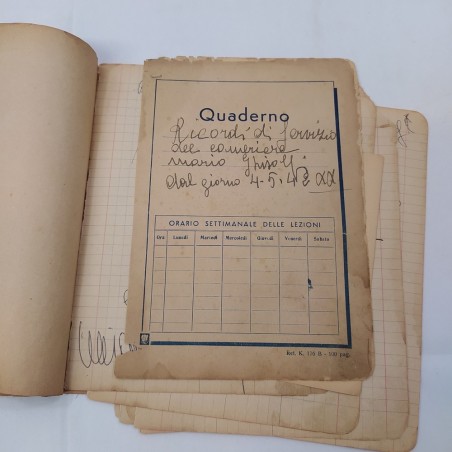 Quaderno
Ricordi di Servizio
del cameriere
mario
dal giorno 4-5-42 XX
ORARIO SETTIMANALE DELLE LEZIONI
Ore Lunedì Martedì Mercoledì Giovedì Venerdì Sabato
Ref. K. - 100 pag.